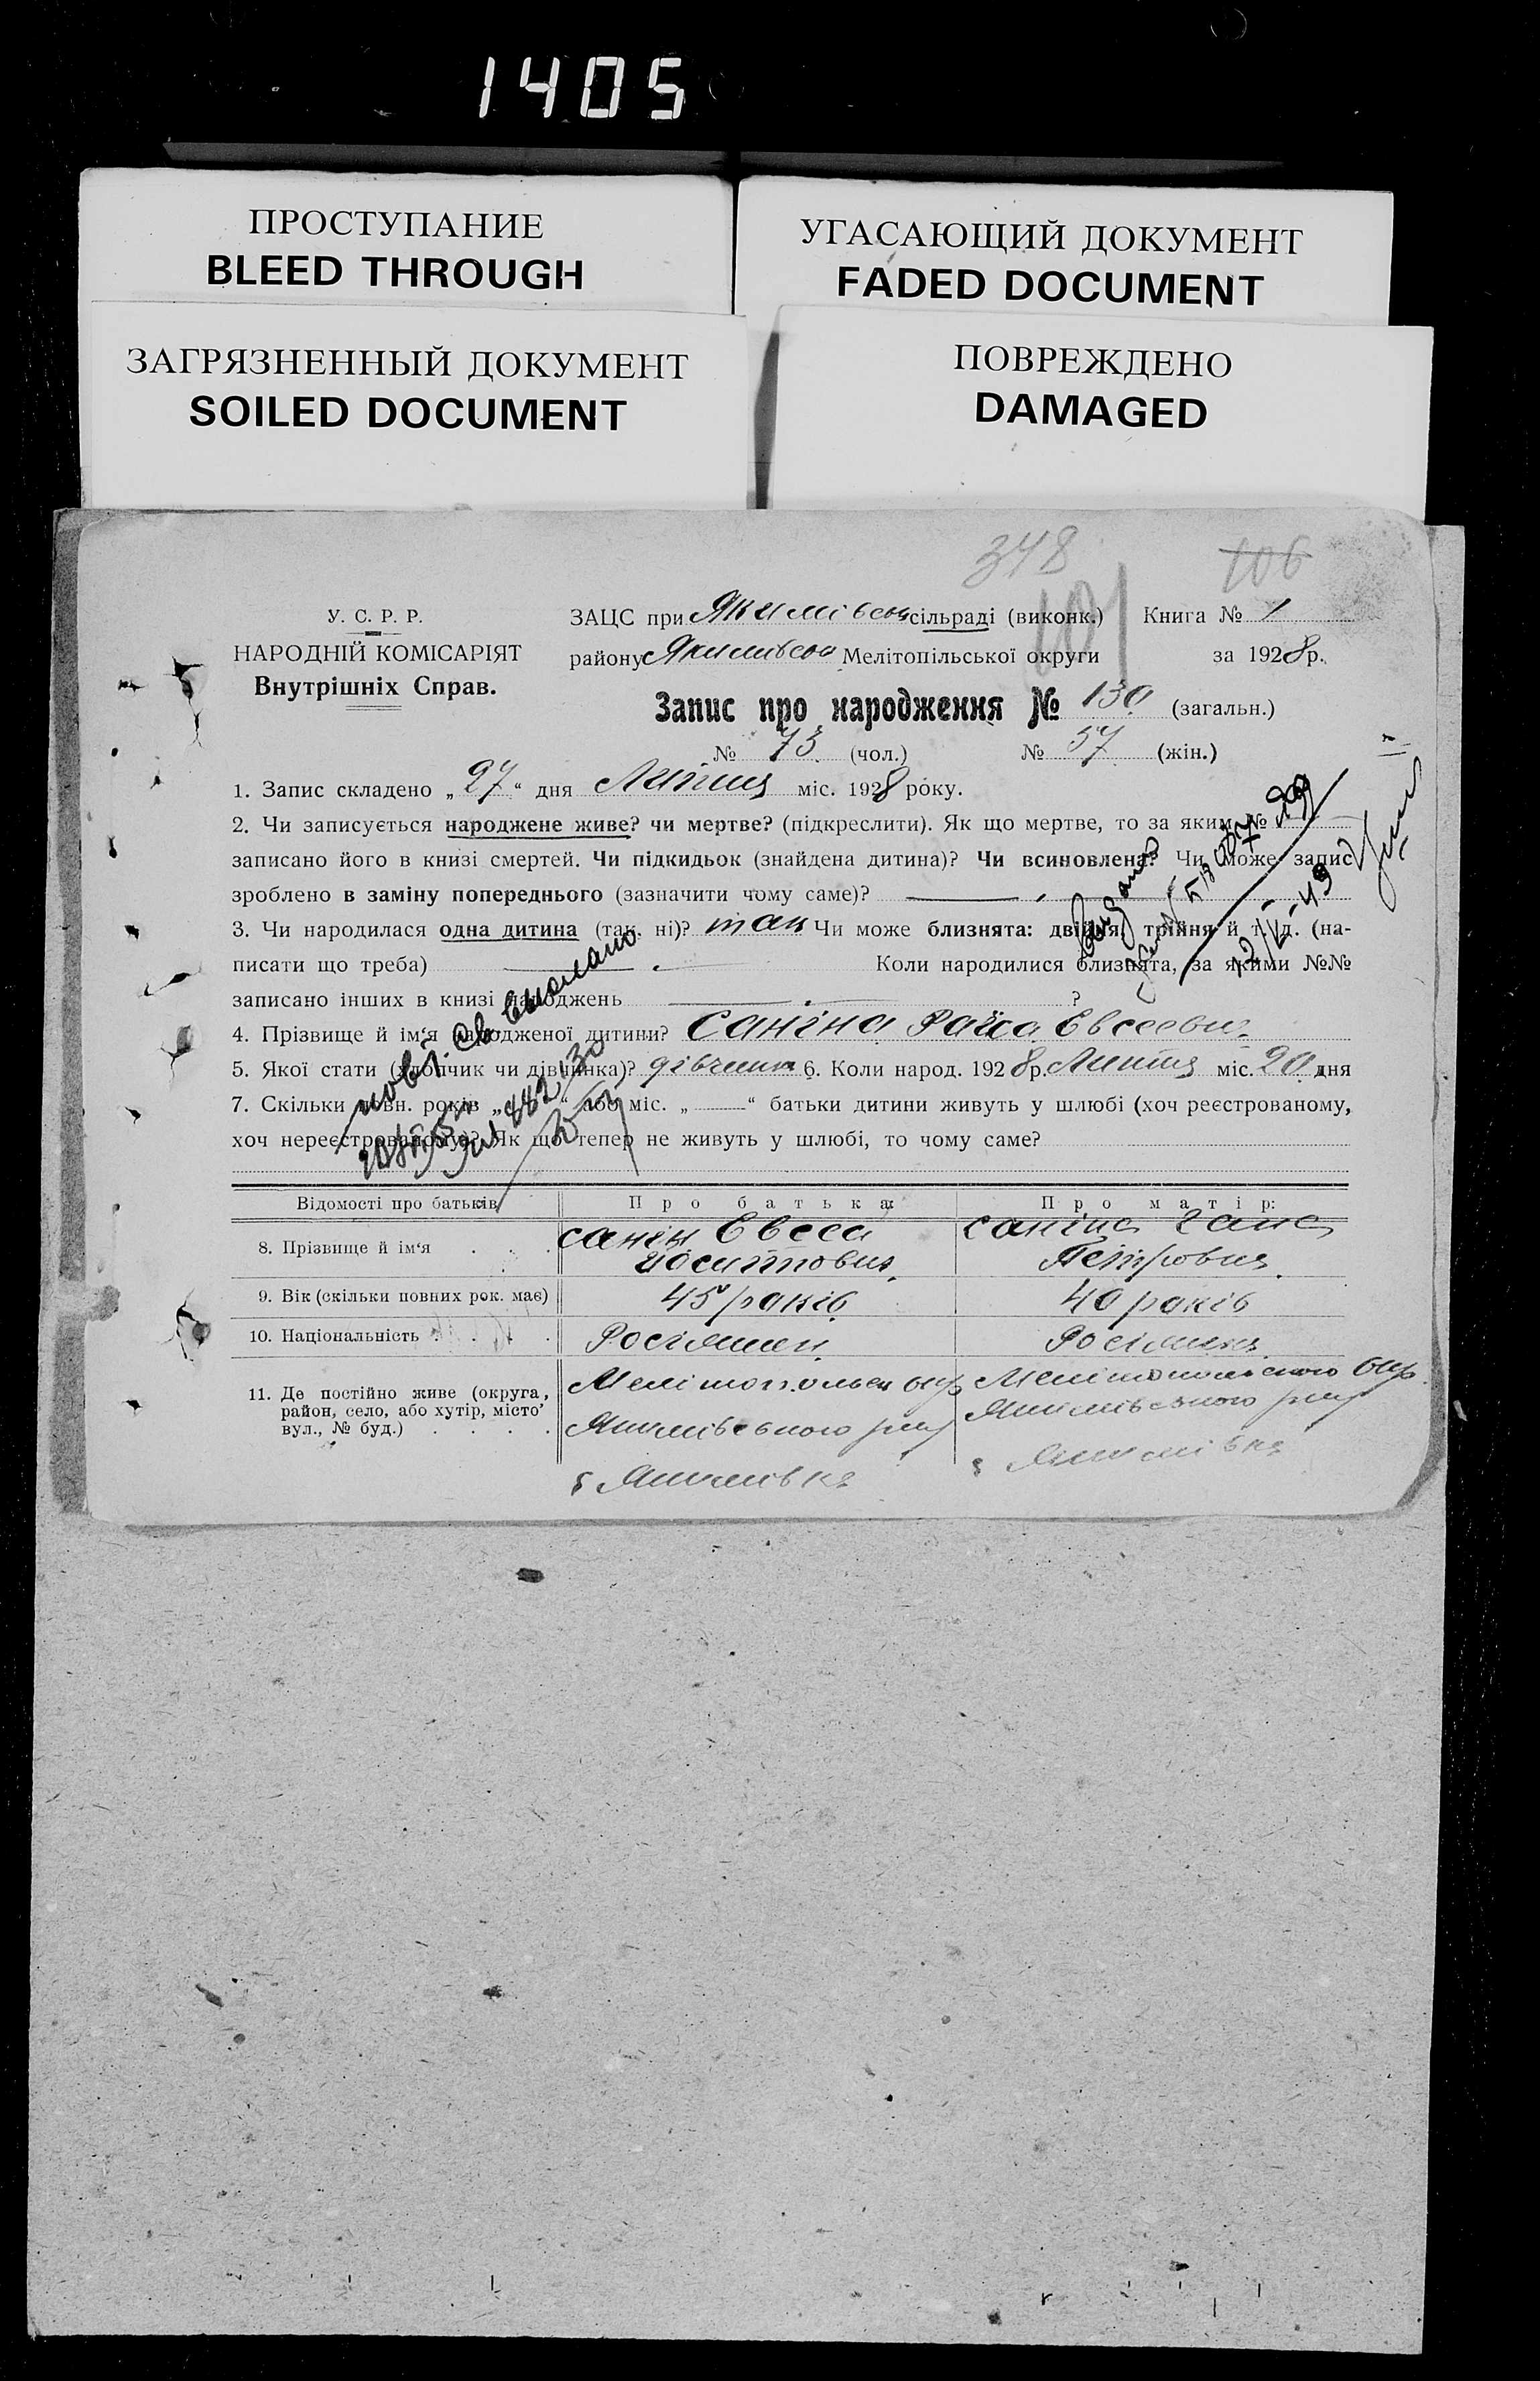 1405
ПРОСТУПАНИЕ
BLEED THROUGH
УГАСАЮЩИЙ ДОКУМЕНТ
FADED DOCUMENT
ЗАГРЯЗНЕННЫЙ ДОКУМЕНТ
SOILED DOCUMENT
ПОВРЕЖДЕНО
DAMAGED
348 106
101
У. С. Р. Р.
НАРОДНІЙ КОМІСАРІЯТ
Внутрішніх Справ.
ЗАЦС при Якимівськ сільраді (виконк.) Книга № 1
району Якимівськ Мелітопільської округи за 1928 р.
Запис про народження № 130 (загальн.)
№ 73 (чол.) № 57 (жін.)
1. Запис складено „27“ дня Липця міс. 1928 року.
2. Чи записується народжене живе? чи мертве? (підкреслити). Як що мертве, то за яким №
записано його в книзі смертей. Чи підкидьок (знайдена дитина)? Чи всиновлена? Чи може запис
зроблено в заміну попереднього (зазначити чому саме)?
3. Чи народилася одна дитина (так, ні)? так Чи може близнята: двійня, трійня й т. д. (на-
писати що треба) Коли народилися близнята, за якими №№
записано інших в книзі народжень ?
4. Прізвище й ім‘я народженої дитини? Саніна Раїса Евсеевна
5. Якої стати (хлопчик чи дівчинка)? дівчинка 6. Коли народ. 1928 р. Липця міс. 20 дня
7. Скільки повн. років „ “ або міс. „ “ батьки дитини живуть у шлюбі (хоч реєстрованому,
хоч нереєстрованому)? Як що тепер не живуть у шлюбі, то чому саме?
Відомості про батьків Про батька: Про матір:
8. Прізвище й ім‘я . . . Санін Евсей Саніна Гана
Иосиповия Петровия
9. Вік (скільки повних рок. має) 45 раків 40 раків
10. Національність . . . . Росіянин Росіянка
11. Де постійно живе (округа, район, село, або хутір, місто’ вул., № буд.) . . . .
Мелітопольськ окр Мелітопольского окр
Якимівського рну Якимівського рну
с Якимівка с Якимівка